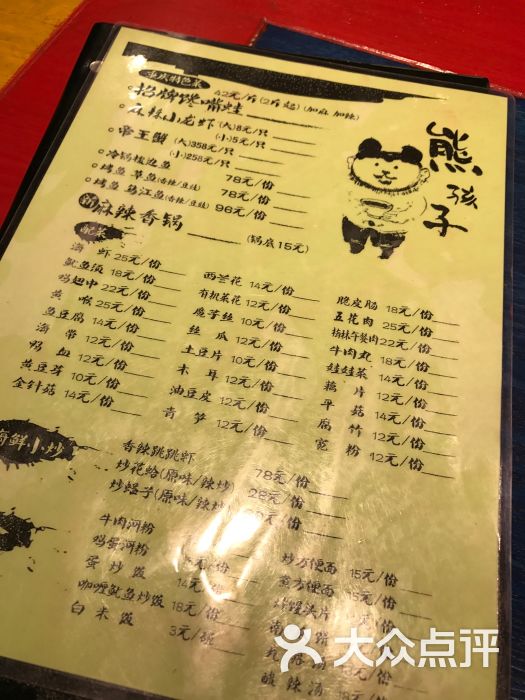 重庆特色菜
招牌馋嘴蛙 42元/斤(2斤起)(加麻 加辣)
麻辣小龙虾 (大)8元/只
(小)5元/只
帝王蟹 (大)358元/只
(小)258元/只
冷锅梭边鱼 78元/份
烤鱼 草鱼(香辣/豆豉) 78元/份
烤鱼 乌江鱼(香辣/豆豉) 98元/份
麻辣香锅 (锅底15元)
熊孩子
配菜
海虾 25元/份
鱿鱼须 18元/份
鸡翅中 22元/份
黄喉 25元/份
鱼豆腐 14元/份
海带 12元/份
鸡血 12元/份
黄豆芽 10元/份
金针菇 14元/份
西兰花 14元/份
有机菜花 12元/份
魔芋丝 10元/份
丝瓜 12元/份
土豆片 10元/份
木耳 12元/份
油豆皮 12元/份
青笋 12元/份
脆皮肠 18元/份
五花肉 25元/份
梅林午餐肉 22元/份
牛肉丸 18元/份
娃娃菜 14元/份
藕片 12元/份
平菇 14元/份
腐竹 12元/份
宽粉 12元/份
海鲜小炒
香辣跳跳虾 78元/份
炒花蛤(原味/辣炒) 28元/份
炒蛏子(原味/辣炒) 元/份
牛肉河粉
鸡蛋河粉 元/份
蛋炒饭 14元/份
咖喱鱿鱼炒饭 18元/份
白米饭 3元/碗
炒方便面 15元/份
煮方便面 15元/份
炒馒头片 元/份
酸辣汤 元/份
大众点评